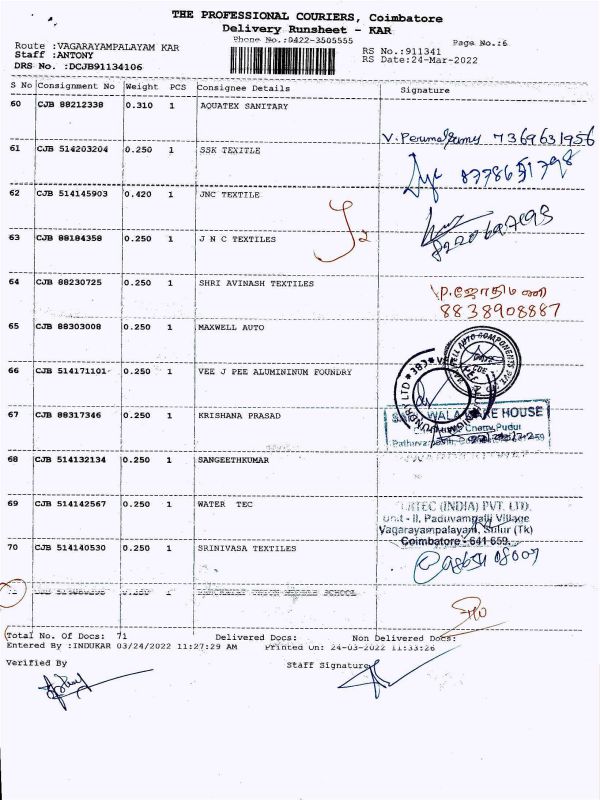 THE PROFESSIONAL COURIERS, Coimbatore
Delivery Runsheet - KAR
Phone No.:0422-3505555
Page No.:6
Route :VAGARAYAMPALAYAM KAR
Staff :ANTONY
DRS No. :DCJB91134106
RS No.:911341
RS Date:24-Mar-2022
S No Consignment No Weight PCS Consignee Details Signature
60 CJB 88212338 0.310 1 AQUATEX SANITARY
V. Perumalsamy 7369631956
61 CJB 514203204 0.250 1 SSK TEXITLE
8778651798
62 CJB 514145903 0.420 1 JNC TEXTILE
63 CJB 88184358 0.250 1 J N C TEXTILES
64 CJB 88230725 0.250 1 SHRI AVINASH TEXTILES
P. ஜோதிமணி
8838908887
65 CJB 88303008 0.250 1 MAXWELL AUTO
66 CJB 514171101 0.250 1 VEE J PEE ALUMININUM FOUNDRY
67 CJB 88317346 0.250 1 KRISHANA PRASAD
WALA WARE HOUSE
Chetty Pudur
68 CJB 514132134 0.250 1 SANGEETHKUMAR
69 CJB 514142567 0.250 1 WATER TEC
(INDIA) PVT. LTD.
Unit - II, Paduvampalli Village
Vagarayampalayam, Sulur (Tk)
Coimbatore - 641 659.
70 CJB 514140530 0.250 1 SRINIVASA TEXTILES
Total No. Of Docs: 71 Delivered Docs: Non Delivered Docs:
Entered By :INDUKAR 03/24/2022 11:27:29 AM Printed On: 24-03-2022 11:33:26
Verified By
Staff Signature